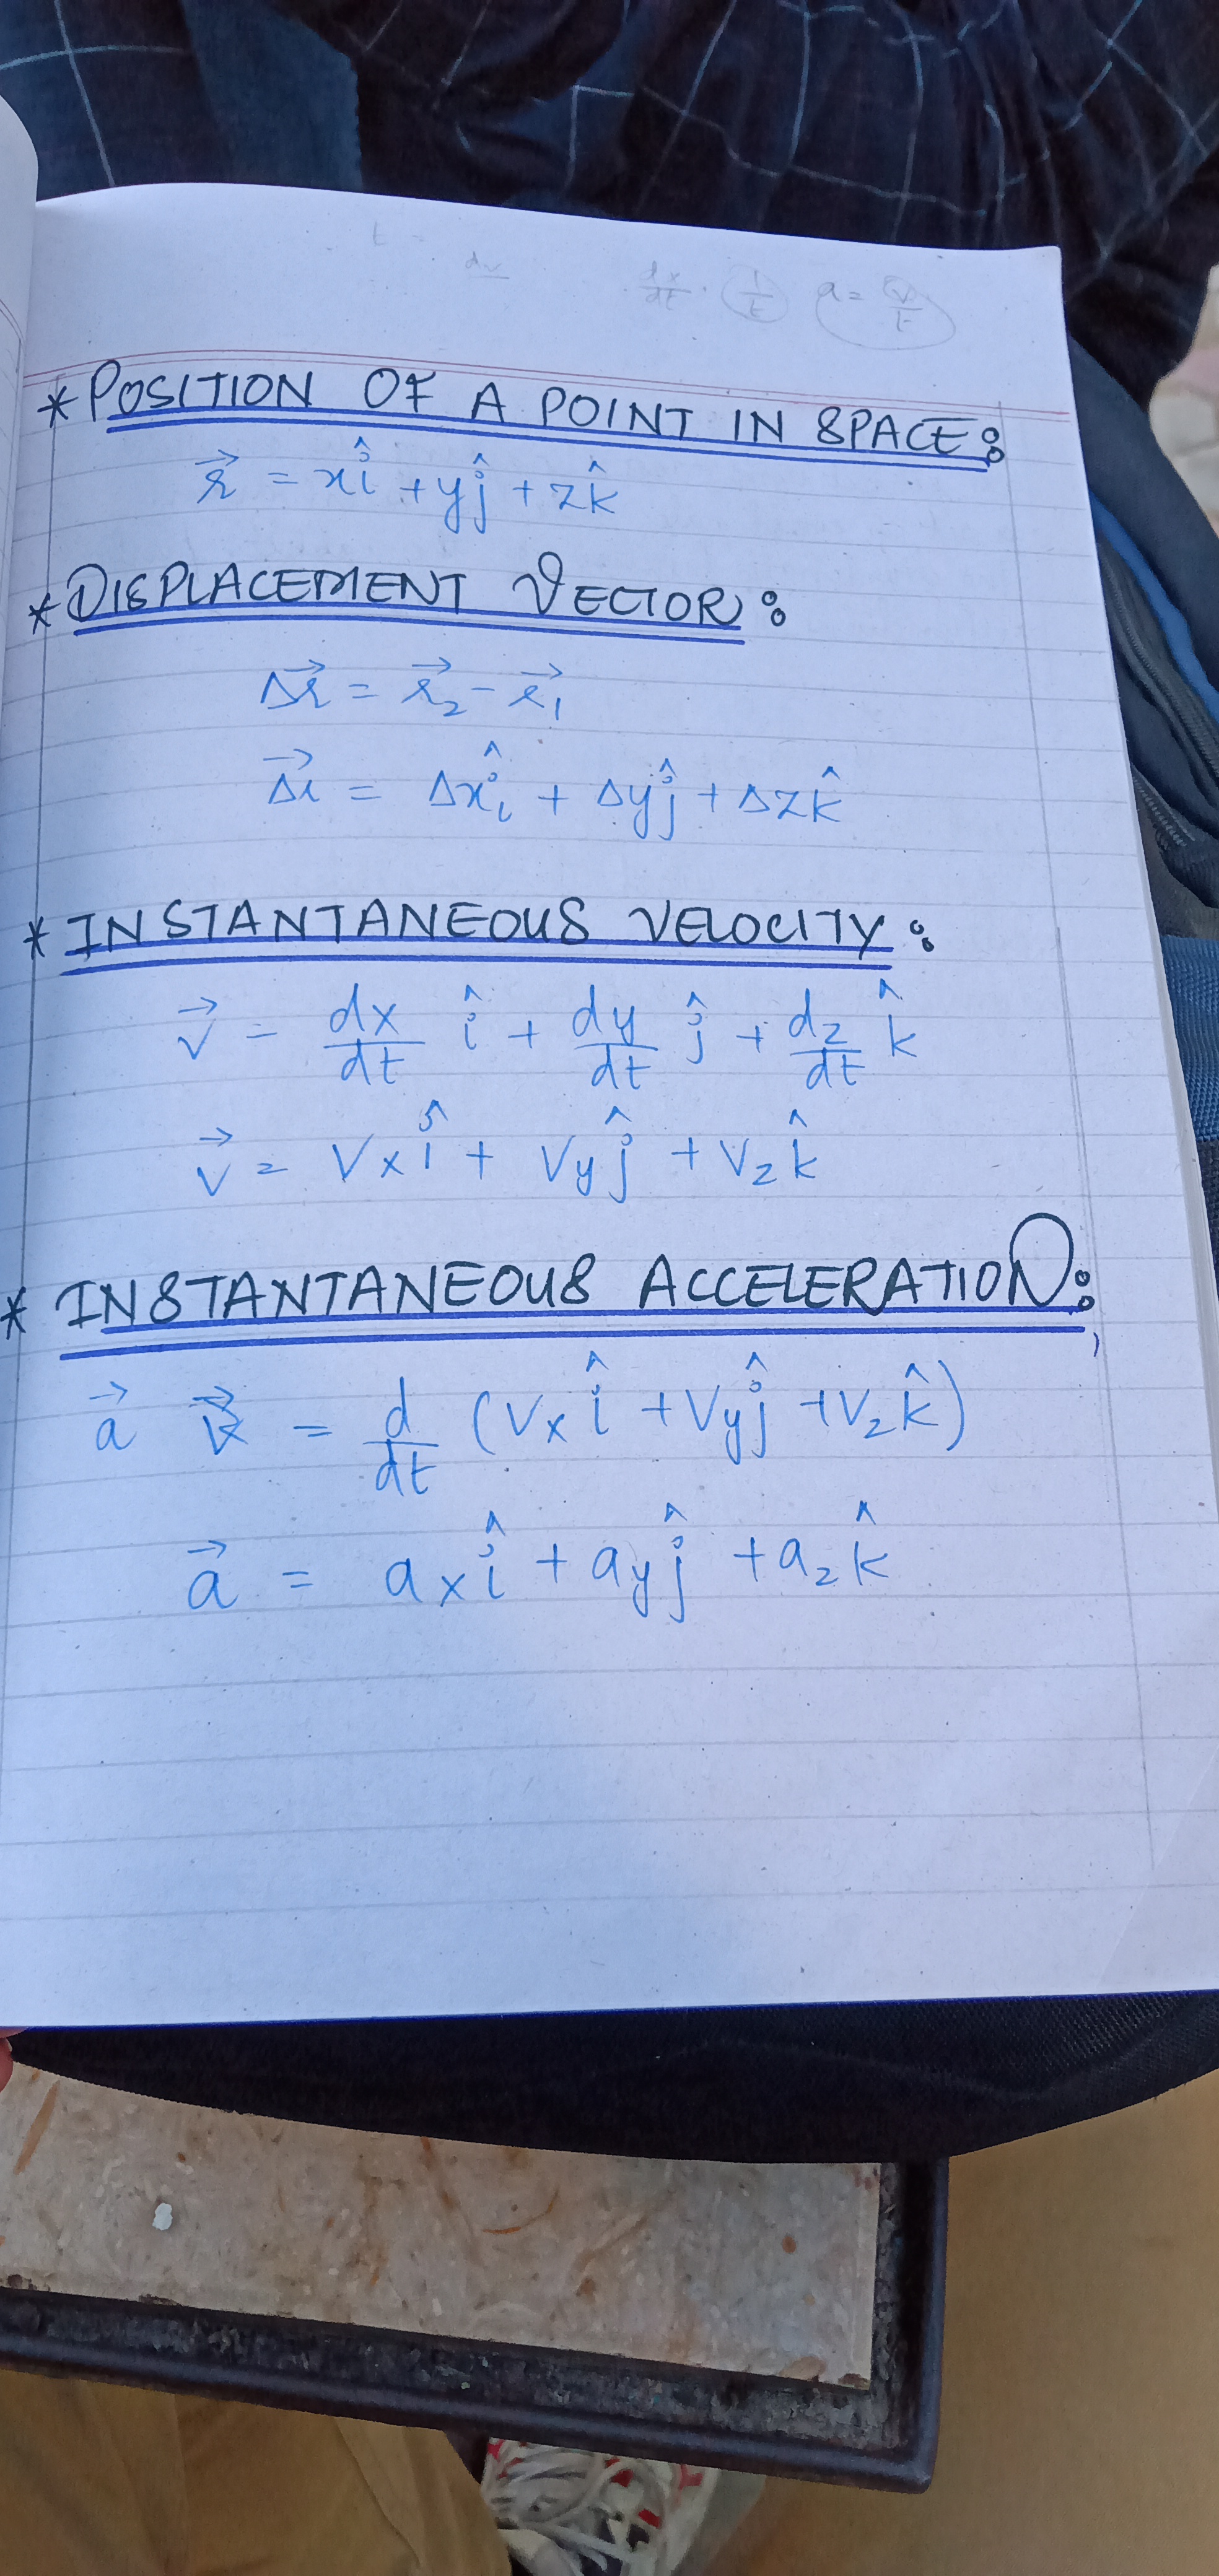 dv dx/dt · 1/t a = v/t
* POSITION OF A POINT IN SPACE:
r⃗ = xî + yĵ + zk̂
* DISPLACEMENT VECTOR:
Δr⃗ = r⃗₂ - r⃗₁
Δr⃗ = Δxî + Δyĵ + Δzk̂
* INSTANTANEOUS VELOCITY:
v⃗ = dx/dt î + dy/dt ĵ + dz/dt k̂
v⃗ = Vxî + Vyĵ + Vzk̂
* INSTANTANEOUS ACCELERATION:
a⃗ = d/dt (Vxî + Vyĵ + Vzk̂)
a⃗ = axî + ayĵ + azk̂